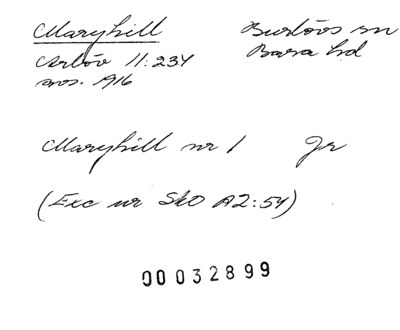 Maryhill Burlövs sn
Arlöv 11:234 Bara hd
avs. 1916
Maryhill nr 1 Jr
(Exc ur SkO A2:54)
00032899